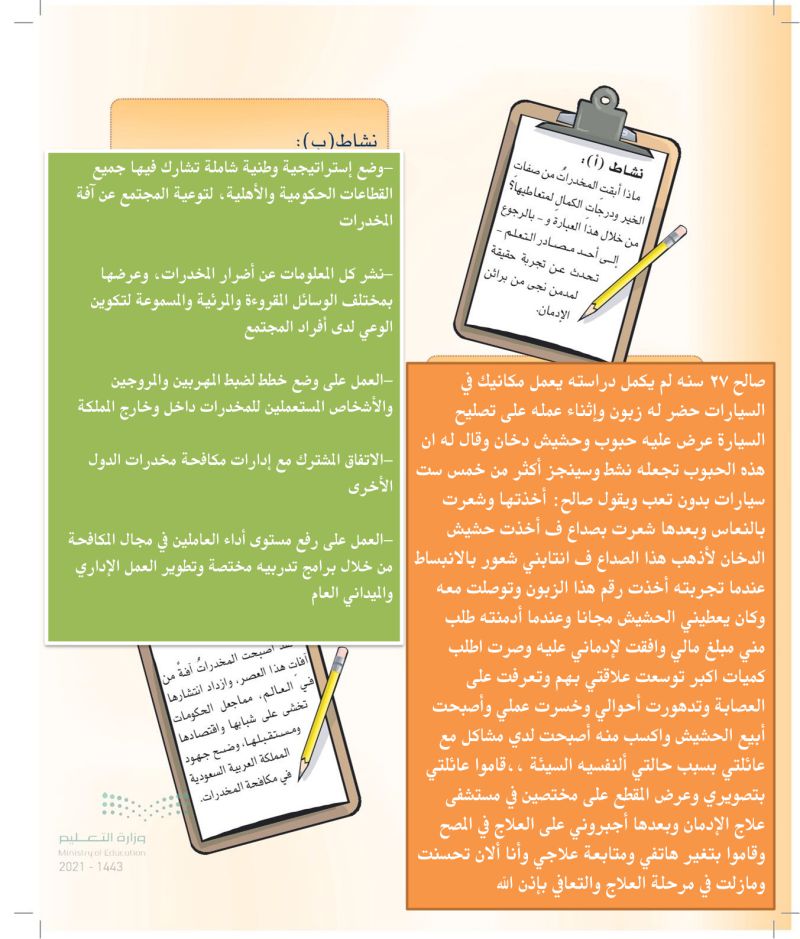 نشاط (أ):
ماذا أبقتِ المخدراتُ من صفاتِ
الخير ودرجاتِ الكمالِ لمتعاطيها؟
من خلال هذا العبارة و - بالرجوع
إلى أحد مصادر التعلم -
تحدث عن تجربة حقيقة
لمدمن نجى من براثن
الإدمان.
صالح ٢٧ سنه لم يكمل دراسته يعمل مكانيك في
السيارات حضر له زبون وإثناء عمله على تصليح
السيارة عرض عليه حبوب وحشيش دخان وقال له ان
هذه الحبوب تجعله نشط وسينجز أكثر من خمس ست
سيارات بدون تعب ويقول صالح: أخذتها وشعرت
بالنعاس وبعدها شعرت بصداع ف أخذت حشيش
الدخان لأذهب هذا الصداع ف انتابني شعور بالانبساط
عندما تجربته أخذت رقم هذا الزبون وتوصلت معه
وكان يعطيني الحشيش مجانا وعندما أدمنته طلب
مني مبلغ مالي وافقت لإدماني عليه وصرت اطلب
كميات اكبر توسعت علاقتي بهم وتعرفت على
العصابة وتدهورت أحوالي وخسرت عملي وأصبحت
أبيع الحشيش واكسب منه أصبحت لدي مشاكل مع
عائلتي بسبب حالتي ألنفسيه السيئة ،،قاموا عائلتي
بتصويري وعرض المقطع على مختصين في مستشفى
علاج الإدمان وبعدها أجبروني على العلاج في المصح
وقاموا بتغير هاتفي ومتابعة علاجي وأنا ألان تحسنت
ومازلت في مرحلة العلاج والتعافي بإذن الله
نشاط (ب):
–وضع إستراتيجية وطنية شاملة تشارك فيها جميع
القطاعات الحكومية والأهلية، لتوعية المجتمع عن آفة
المخدرات
–نشر كل المعلومات عن أضرار المخدرات، وعرضها
بمختلف الوسائل المقروءة والمرئية والمسموعة لتكوين
الوعي لدى أفراد المجتمع
–العمل على وضع خطط لضبط المهربين والمروجين
والأشخاص المستعملين للمخدرات داخل وخارج المملكة
–الاتفاق المشترك مع إدارات مكافحة مخدرات الدول
الأخرى
–العمل على رفع مستوى أداء العاملين في مجال المكافحة
من خلال برامج تدربيه مختصة وتطوير العمل الإداري
والميداني العام
أصبحت المخدراتُ آفةً من
آفاتِ هذا العصر، وازداد انتشارها
في العالم، مماجعل الحكومات
تخشى على شبابها واقتصادها
ومستقبلها، وضح جهود
المملكة العربية السعودية
في مكافحة المخدرات.
وزارة التعليم
Ministry of Education
2021 - 1443